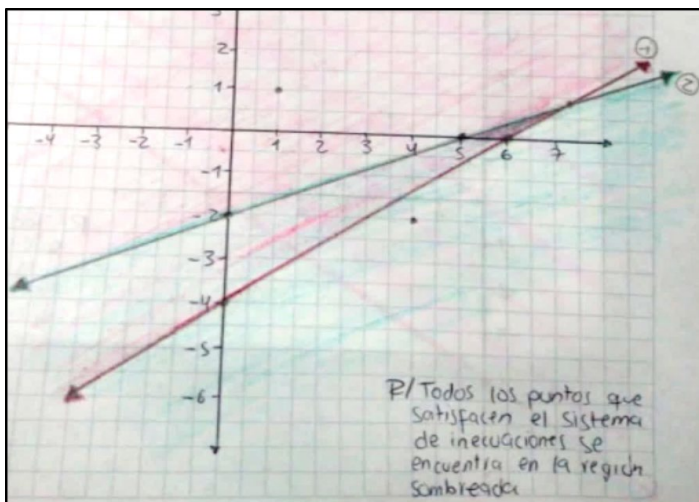 3
2
1
-4 -3 -2 -1 1 2 3 4 5 6 7
-1
-2
-3
-4
-5
-6
1
2
R/ Todos los puntos que
satisfacen el sistema
de inecuaciones se
encuentra en la región
sombreada